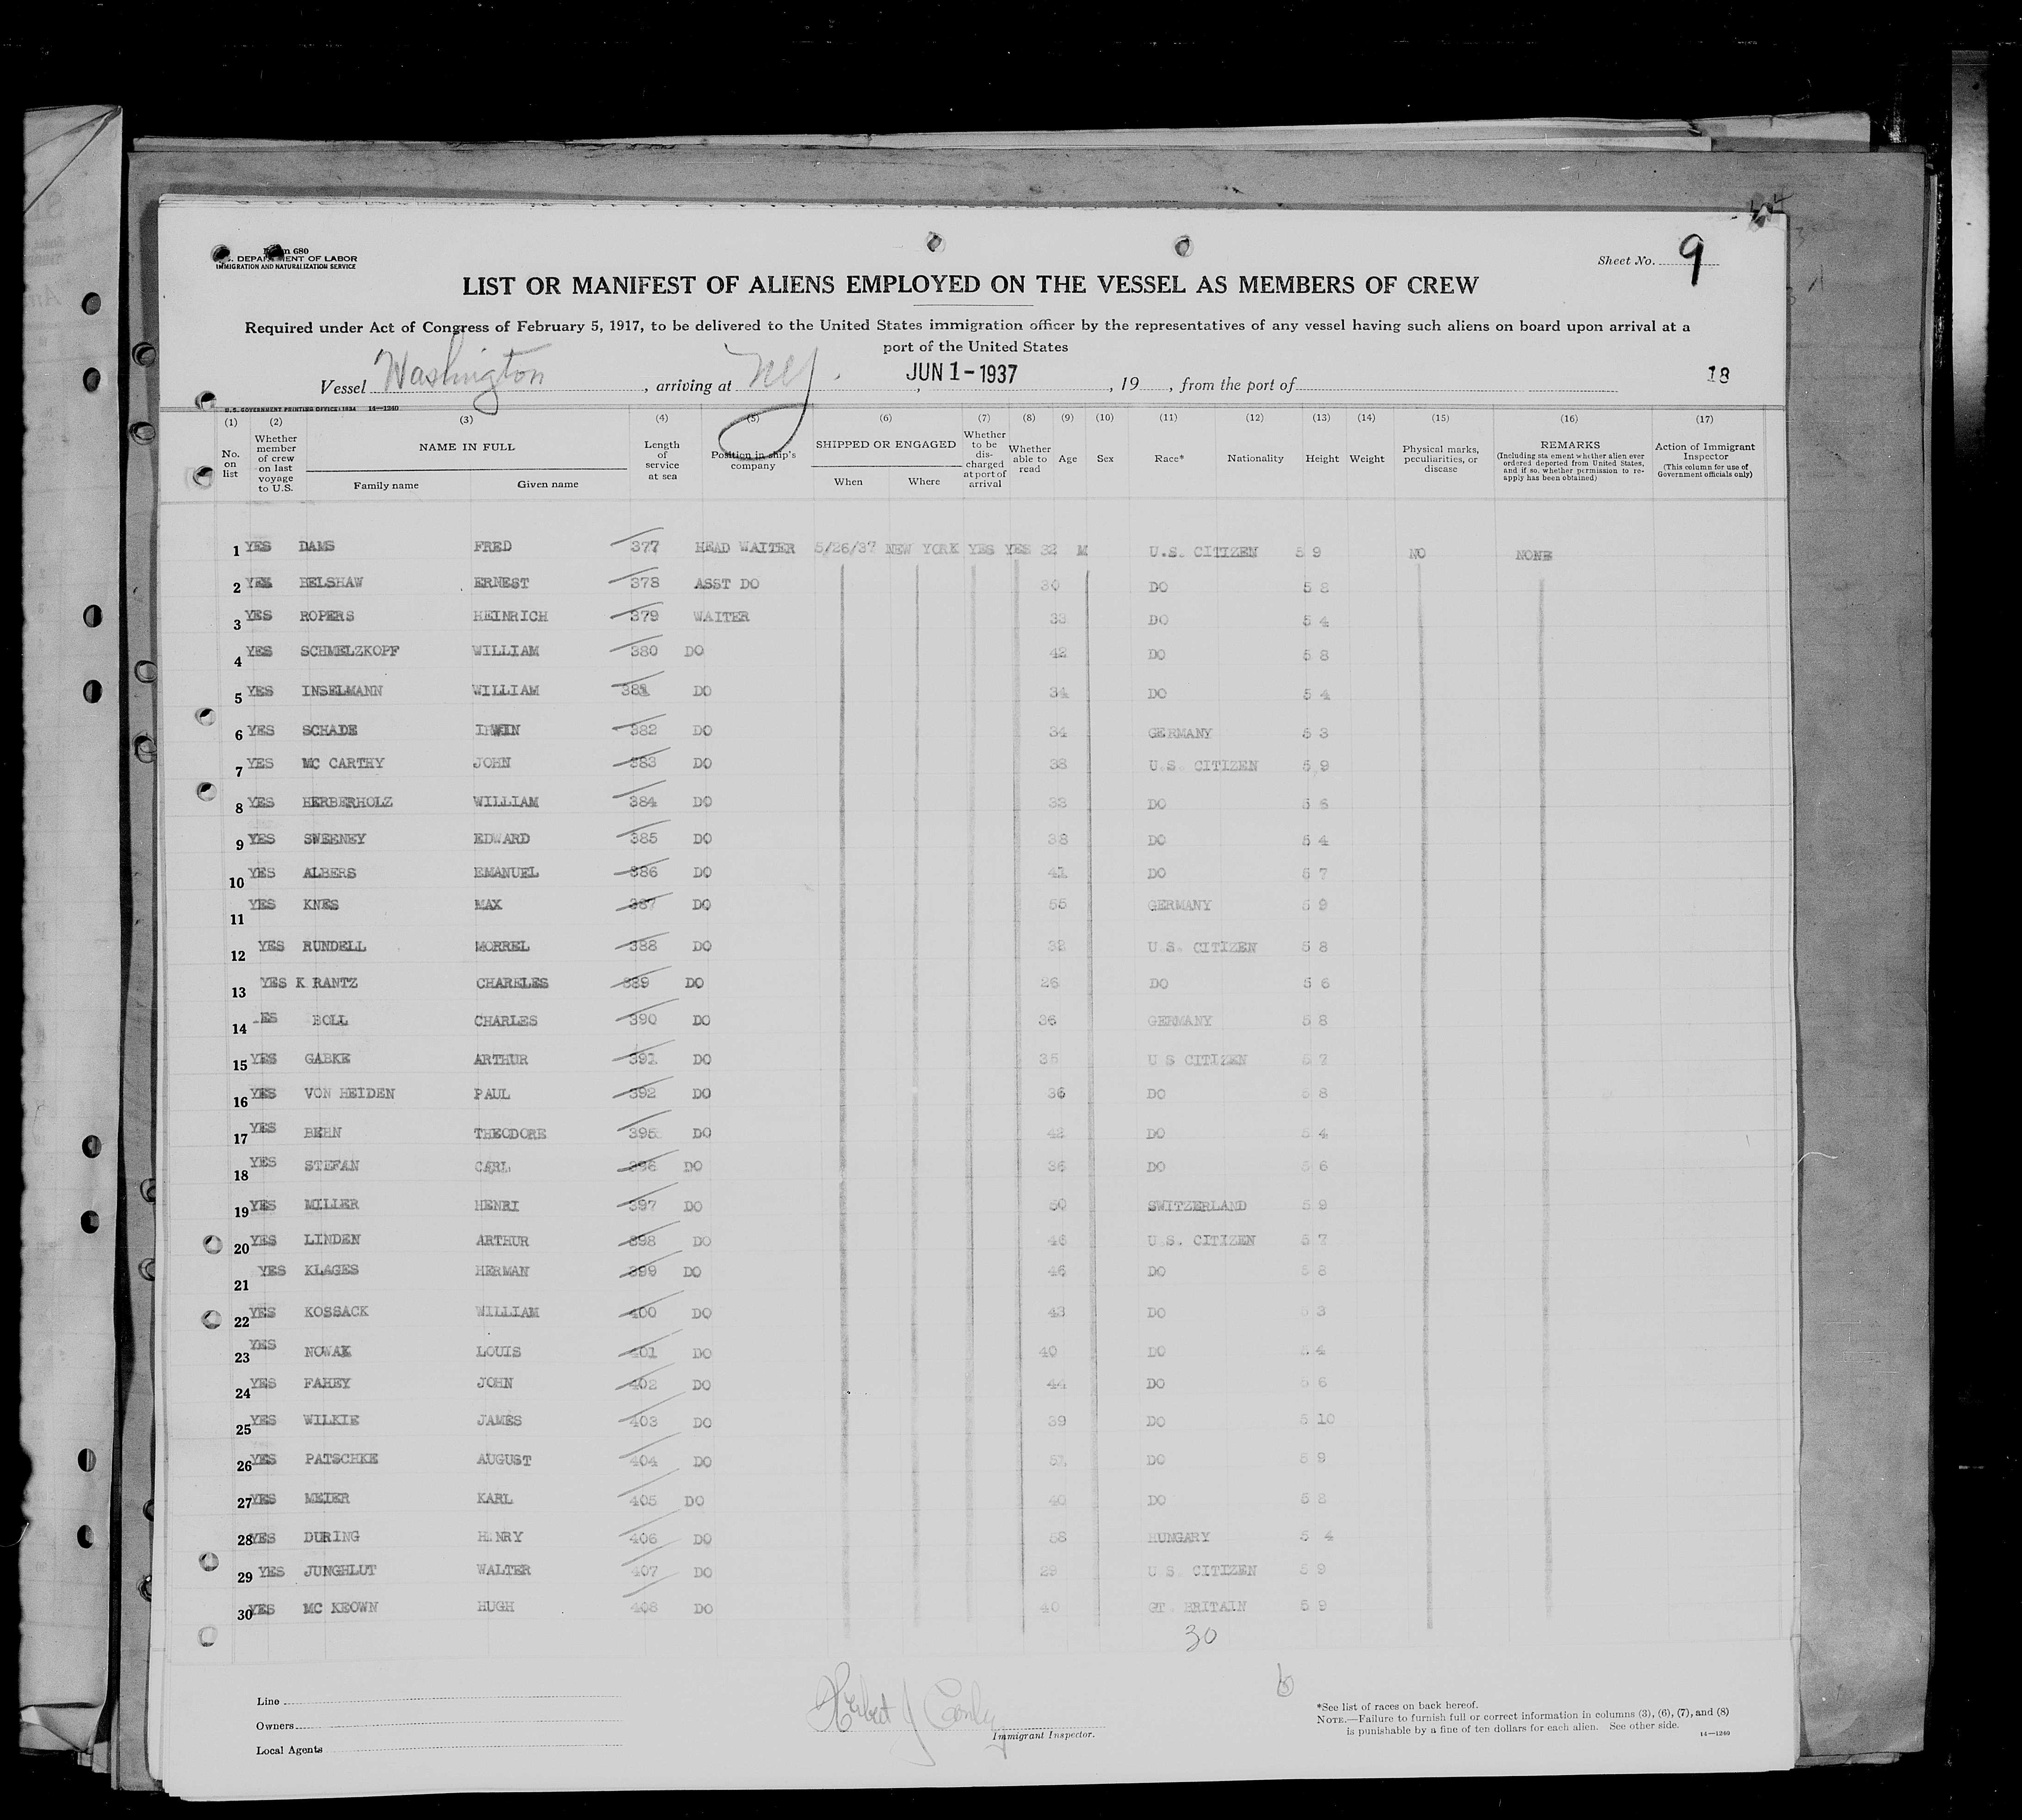 Form 680
U.S. DEPARTMENT OF LABOR
IMMIGRATION AND NATURALIZATION SERVICE
Sheet No. 9
LIST OR MANIFEST OF ALIENS EMPLOYED ON THE VESSEL AS MEMBERS OF CREW
Required under Act of Congress of February 5, 1917, to be delivered to the United States immigration officer by the representatives of any vessel having such aliens on board upon arrival at a
port of the United States
Vessel Washington, arriving at NY. , JUN 1 - 1937, 19 , from the port of 18
U.S. GOVERNMENT PRINTING OFFICE: 1934 14—1240
(1) (2) (3) (4) (5) (6) (7) (8) (9) (10) (11) (12) (13) (14) (15) (16) (17)
No. on list
Whether member of crew on last voyage to U.S.
NAME IN FULL
Family name Given name
Length of service at sea
Position in ship's company
SHIPPED OR ENGAGED
When Where
Whether to be discharged at port of arrival
Whether able to read
Age Sex Race* Nationality Height Weight
Physical marks, peculiarities, or disease
REMARKS
(Including statement whether alien ever ordered deported from United States, and if so, whether permission to reapply has been obtained)
Action of Immigrant Inspector
(This column for use of Government officials only)
1 YES DAMS FRED 377 HEAD WAITER 5/26/37 NEW YORK YES YES 32 M U.S. CITIZEN 5 9 NO NONE
2 YES BELSHAW ERNEST 378 ASST DO 30 DO 5 8
3 YES ROPERS HEINRICH 379 WAITER 33 DO 5 4
4 YES SCHMELZKOPF WILLIAM 380 DO 42 DO 5 8
5 YES INSELMANN WILLIAM 381 DO 34 DO 5 4
6 YES SCHADE IRWIN 382 DO 34 GERMANY 5 3
7 YES MC CARTHY JOHN 383 DO 38 U.S. CITIZEN 5 9
8 YES HERBERHOLZ WILLIAM 384 DO 33 DO 5 6
9 YES SWEENEY EDWARD 385 DO 38 DO 5 4
10 YES ALBERS EMANUEL 386 DO 41 DO 5 7
11 YES KNES MAX 387 DO 55 GERMANY 5 9
12 YES RUNDELL MORREL 388 DO 32 U.S. CITIZEN 5 8
13 YES K RANTZ CHARELES 389 DO 26 DO 5 6
14 ES BOLL CHARLES 390 DO 36 GERMANY 5 8
15 YES GABKE ARTHUR 391 DO 35 U S CITIZEN 5 7
16 YES VON HEIDEN PAUL 392 DO 36 DO 5 8
17 YES BEHN THEODORE 395 DO 42 DO 5 4
18 YES STEFAN CARL 396 DO 36 DO 5 6
19 YES MILLER HENRI 397 DO 50 SWITZERLAND 5 9
20 YES LINDEN ARTHUR 398 DO 46 U.S. CITIZEN 5 7
21 YES KLAGES HERMAN 399 DO 46 DO 5 8
22 YES KOSSACK WILLIAM 400 DO 43 DO 5 3
23 YES NOWAK LOUIS 401 DO 40 DO 5 4
24 YES FAHEY JOHN 402 DO 44 DO 5 6
25 YES WILKIE JAMES 403 DO 39 DO 5 10
26 YES PATSCHKE AUGUST 404 DO 51 DO 5 9
27 YES MEIER KARL 405 DO 40 DO 5 8
28 YES DURING HENRY 406 DO 58 HUNGARY 5 4
29 YES JUNGHLUT WALTER 407 DO 29 U S CITIZEN 5 9
30 YES MC KEOWN HUGH 408 DO 40 GT. BRITAIN 5 9
30
6
Line
Owners
Local Agents
Herbert J Conley
Immigrant Inspector.
*See list of races on back hereof.
NOTE.—Failure to furnish full or correct information in columns (3), (6), (7), and (8)
is punishable by a fine of ten dollars for each alien. See other side.
14—1240